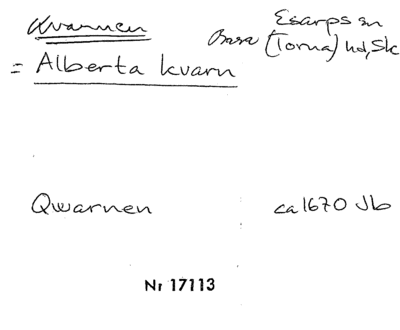 Kvarnen
Esarps sn
Bara (Torna) hd, Sk
= Alberta kvarn
Qwarnen ca 1670 Jb
Nr 17113